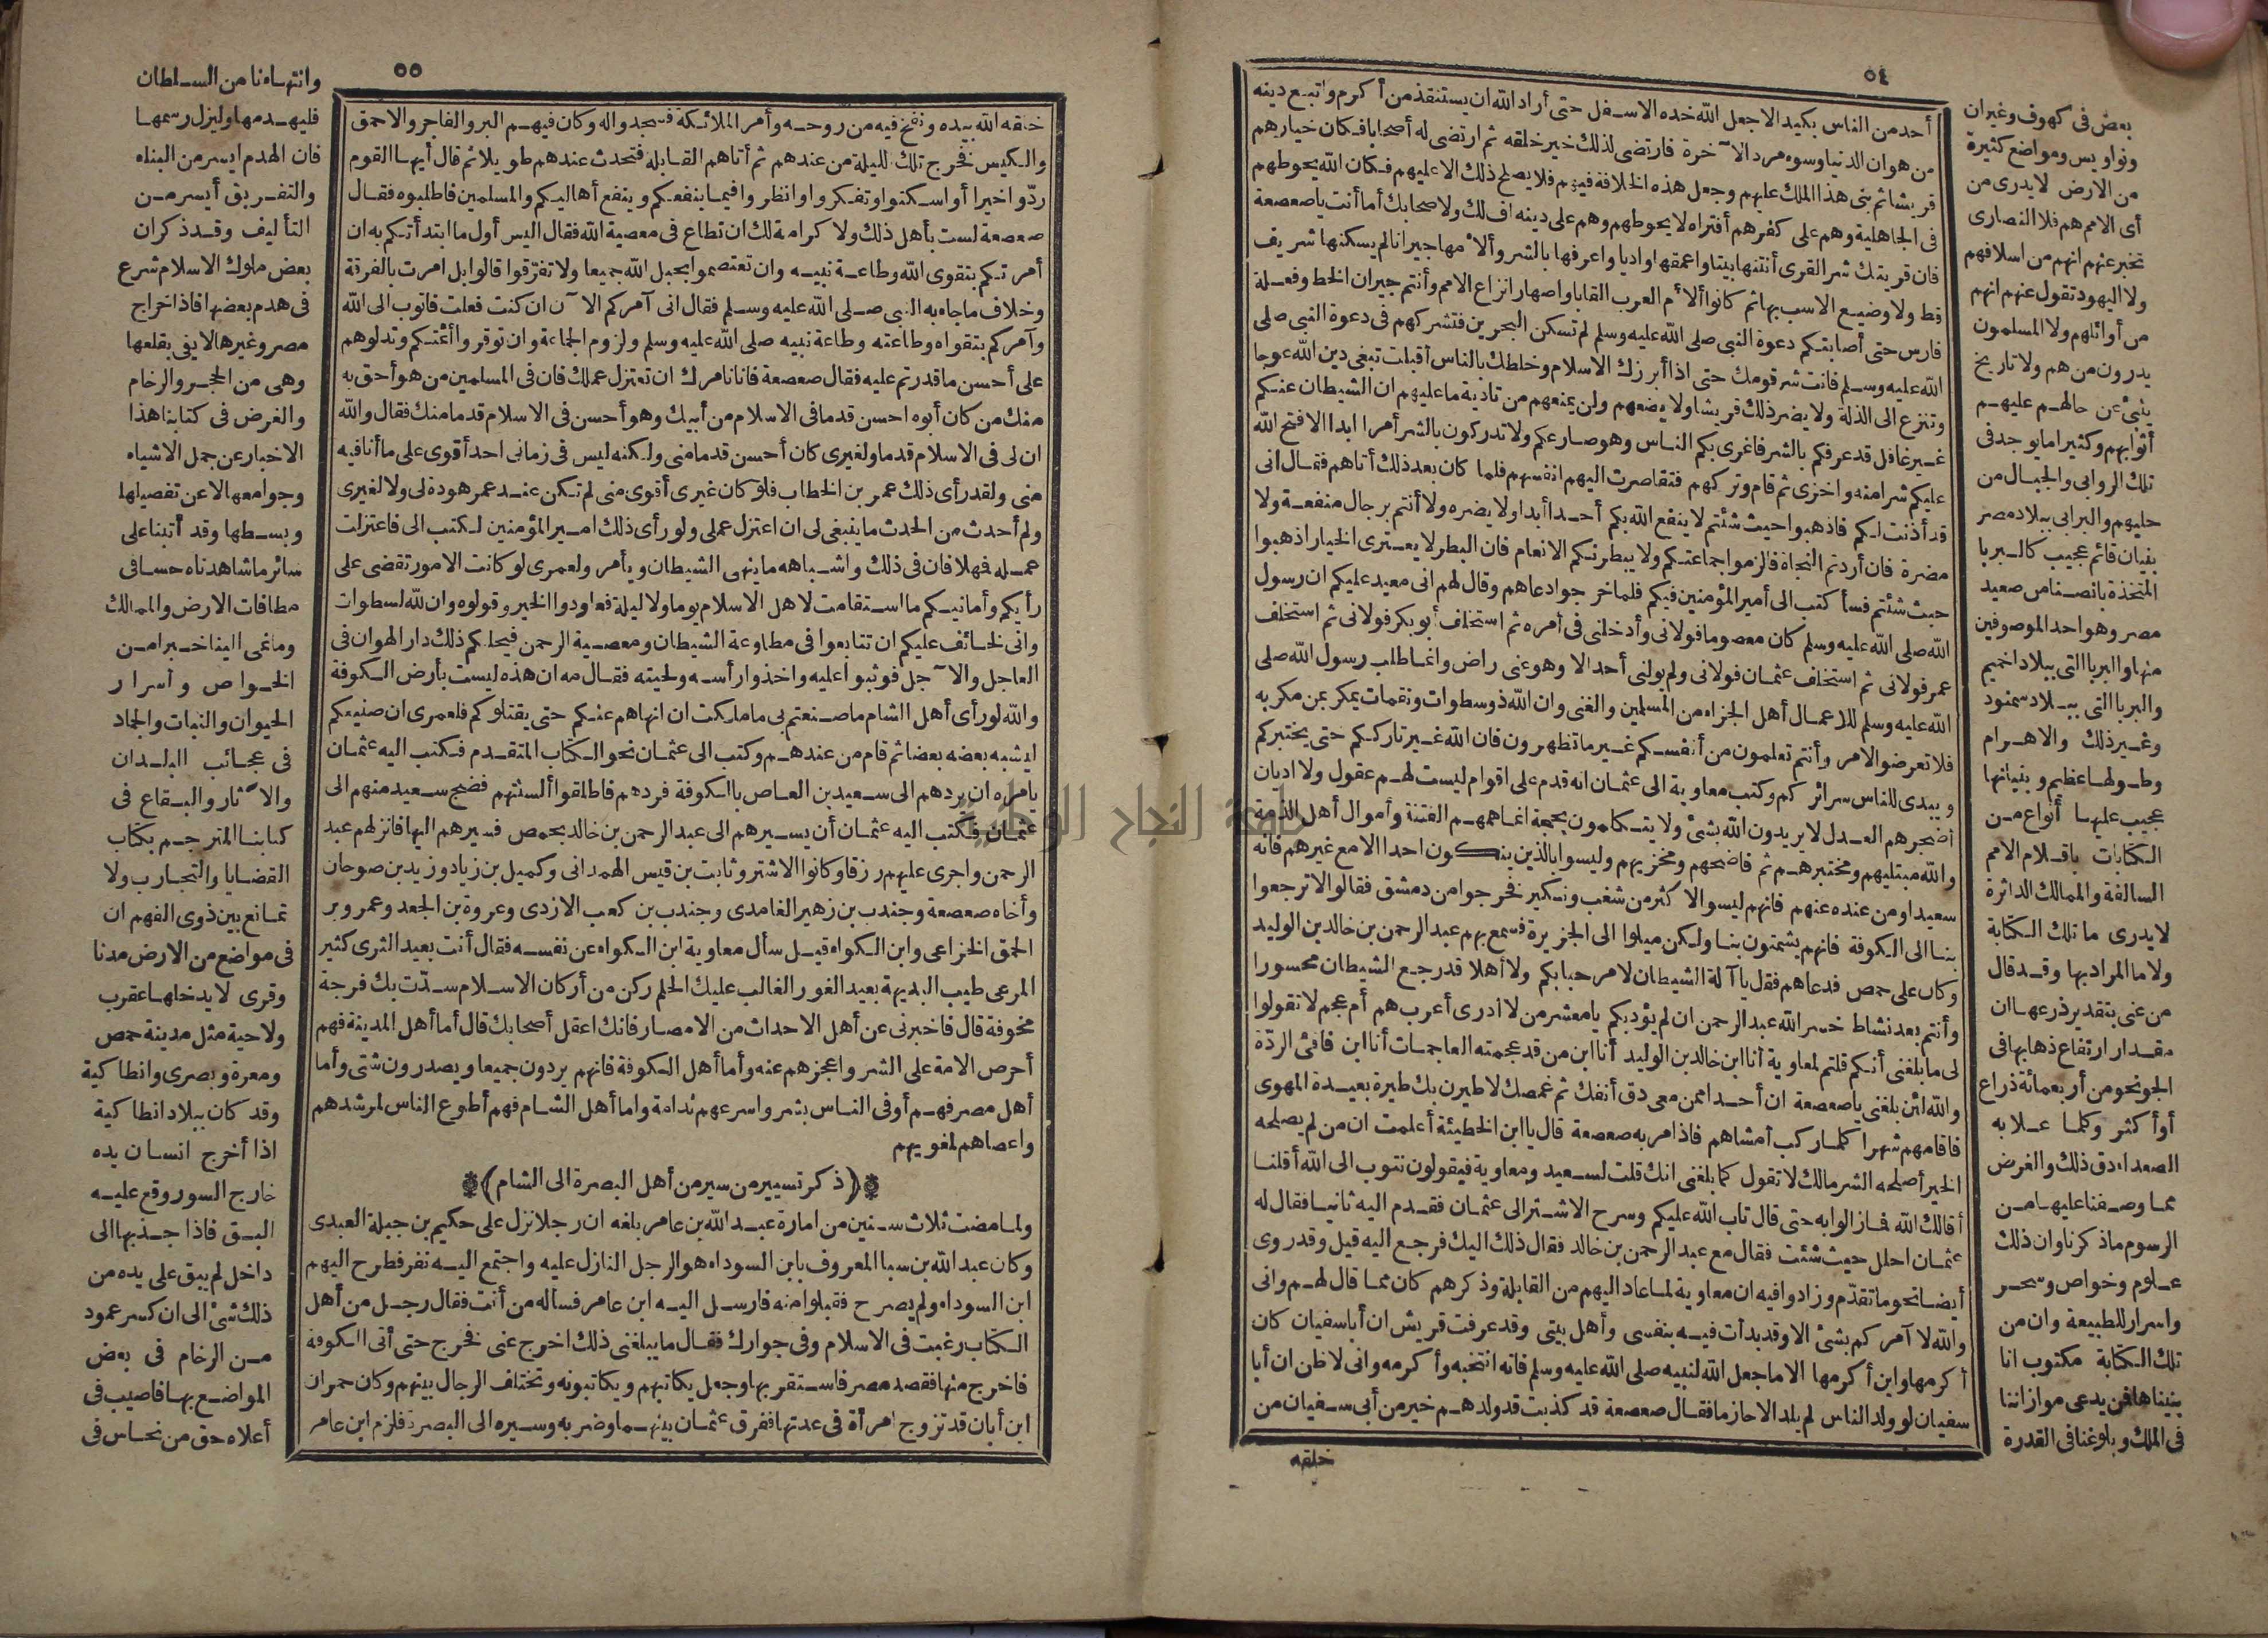 ٥٤
أحد من الناس بكيد الا جعل الله خده الاسفل حتى أراد الله ان يستنقذ من أكرم واتبع دينه
من هوان الدنيا وسوء مرد الآخرة فارتضى لذلك خير خلقه ثم ارتضى له أصحابا فكان خيارهم
قريشا ثم بنى هذا الملك عليهم وجعل هذه الخلافة فيهم فلا يصلح ذلك الا عليهم فكان الله يحوطهم
فى الجاهلية وهم على كفرهم أفتراه لا يحوطهم وهم على دينه اف لك ولاصحابك أما أنت يا صعصعة
فان قريتك شر القرى أنتنها بيتا واعمقها واديا واعرفها بالشر وألأمها جيرانا لم يسكنها شريف
قط ولا وضيع الا سب بها ثم كانوا ألأم العرب القابا واصهارا نزاع الامم وأنتم جيران الخط وفعلة
فارس حتى أصابتكم دعوة النبى صلى الله عليه وسلم لم تسكن البحرين فتشركهم فى دعوة النبى صلى
الله عليه وسلم فانت شر قومك حتى اذا أبرزك الاسلام وخلطك بالناس أقبلت تبغى دين الله عوجا
وتنزع الى الذلة ولا يضر ذلك قريشا ولا يضعهم ولن يمنعهم من تادية ما عليهم ان الشيطان عنكم
غير غافل قد عرفكم بالشر فاغرى بكم الناس وهو صارعكم ولا تدركون بالشر أمرا ابدا الا فتح الله
عليكم شرا منه واخزى ثم قام وتركهم فتقاصرت اليهم انفسهم فلما كان بعد ذلك أتاهم فقال انى
قد أذنت لكم فاذهبوا حيث شئتم لا ينفع الله بكم أحدا أبدا ولا يضره ولا أنتم برجال منفعة ولا
مضرة فان أردتم النجاة فالزموا جماعتكم ولا يبطرنكم الانعام فان البطر لا يعترى الخيار اذهبوا
حيث شئتم فسأكتب الى أمير المؤمنين فيكم فلما خرجوا دعاهم وقال لهم انى معيد عليكم ان رسول
الله صلى الله عليه وسلم كان معصوما فولانى وأدخلنى فى أمره ثم استخلف أبو بكر فولانى ثم استخلف
عمر فولانى ثم استخلف عثمان فولانى ولم يولنى أحد الا وهو عنى راض وانما طلب رسول الله صلى
الله عليه وسلم للاعمال أهل الجزاء من المسلمين والغنى وان الله ذو سطوات ونقمات يمكر بمن مكر به
فلا تعرضوا لامر وأنتم تعلمون من أنفسكم غير ما تظهرون فان الله غير تارككم حتى يختبركم
ويبدى للناس سرائركم وكتب معاوية الى عثمان انه قدم على اقوام ليست لهم عقول ولا اديان
أضجرهم العدل لا يريدون الله بشئ ولا يتكلمون بحجة انما همهم الفتنة وأموال أهل الذمة
والله مبتليهم ومختبرهم ثم فاضحهم ومخزيهم وليسوا بالذين ينكون احدا الا مع غيرهم فانه
سعيدا ومن عنده عنهم فانهم ليسوا لاكثر من شغب ونكير فخرجوا من دمشق فقالوا لا ترجعوا
بنا الى الكوفة فانهم يشمتون بنا ولكن ميلوا الى الجزيرة فسمع بهم عبد الرحمن بن خالد بن الوليد
وكان على حمص فدعاهم فقل يا آلة الشيطان لا مرحبا بكم ولا أهلا قد رجع الشيطان محسورا
وأنتم بعد نشاط خسر الله عبد الرحمن ان لم يؤدبكم يا معشر من لا أدرى أعرب هم أم عجم لا تقولوا
لى ما بلغنى أنكم قلتم لمعاوية أنا ابن خالد بن الوليد أنا ابن من قد عجمته العاجمات أنا ابن فاقئ الردّة
والله لئن بلغنى يا صعصعة ان أحدا ممن معى دق أنفك ثم غمصك لاطيرن بك طيرة بعيدة المهوى
فاقامهم شهرا كلما ركب أمشاهم فاذا مر به صعصعة قال يا ابن الخطيئة أعلمت ان من لم يصلحه
الخير أصلحه الشر مالك لا تقول كما بلغنى انك قلت لسعيد ومعاوية فيقولون نتوب الى الله أقلنا
أقالك الله فما زالوا به حتى قال تاب الله عليكم وسرح الاشتر الى عثمان فقدم اليه ثانيا فقال له
عثمان احلل حيث شئت فقال مع عبد الرحمن بن خالد فقال ذلك اليك فرجع اليه قيل وقد روى
أيضا نحو ما تقدّم وزادوا فيه ان معاوية لما عاد اليهم من القابلة وذكرهم كان مما قال لهم وانى
والله لا آمركم بشئ الا وقد بدأت فيه بنفسى وأهل بيتى وقد عرفت قريش ان أبا سفيان كان
أكرمها وابن أكرمها الا ما جعل الله لنبيه صلى الله عليه وسلم فانه انتخبه وأكرمه وانى لاظن ان أبا
سفيان لو ولد الناس لم يلد الا حازما فقال صعصعة قد كذبت قد ولدهم خير من أبى سفيان من
خلقه
بعض فى كهوف وغيران
ونواويس ومواضع كثيرة
من الارض لا يدرى من
أى الامم هم فلا النصارى
تخبر عنهم انهم من اسلافهم
ولا اليهود تقول عنهم انهم
من أوائلهم ولا المسلمون
يدرون من هم ولا تاريخ
ينبئ عن حالهم عليهم
أثوابهم وكثيرا ما يوجد فى
تلك الروابى والجبال من
حليهم والبرابى ببلاد مصر
بنيان قائم عجيب كالبربا
المتخذة بانصنا من صعيد
مصر وهو احد الموصوفين
منها والبربا التى ببلاد اخميم
والبربا التى ببلاد سمنود
وغير ذلك والاهرام
وطولها عظيم وبنيانها
عجيب عليها أنواع من
الكتابات باقلام الامم
السالفة والممالك الداثرة
لا يدرى ما تلك الكتابة
ولا ما المراد بها وقد قال
من عنى بتقدير ذرعها ان
مقدار ارتفاع ذهابها فى
الجو نحو من أربعمائة ذراع
أو أكثر وكلما علا به
الصعداء دق ذلك والعرض
مما وصفنا عليها من
الرسوم ما ذكرنا وان ذلك
علوم وخواص وسحر
واسرار للطبيعة وان من
تلك الكتابة مكتوب انا
بنيناها فمن يدعى موازاتنا
فى الملك وبلوغنا فى القدرة
٥٥
خلقه الله بيده ونفخ فيه من روحه وأمر الملائكة فسجدوا له وكان فيهم البر والفاجر والاحمق
والكيس فخرج تلك الليلة من عندهم ثم أتاهم القابلة فتحدث عندهم طويلا ثم قال أيها القوم
ردّوا خيرا أو اسكتوا وتفكروا وانظروا فيما ينفعكم وينفع أهاليكم والمسلمين فاطلبوه فقال
صعصعة لست بأهل ذلك ولا كرامة لك ان تطاع فى معصية الله فقال اليس أول ما ابتدأتكم به ان
أمرتكم بتقوى الله وطاعة نبيه وان تعتصموا بحبل الله جميعا ولا تفرّقوا قالوا بل امرت بالفرقة
وخلاف ما جاء به النبى صلى الله عليه وسلم فقال انى آمركم الآن ان كنت فعلت فاتوب الى الله
وآمركم بتقواه وطاعته وطاعة نبيه صلى الله عليه وسلم ولزوم الجماعة وان توقروا أئمتكم وتدلوهم
على أحسن ما قدرتم عليه فقال صعصعة فانا نامرك ان تعتزل عملك فان فى المسلمين من هو أحق به
منك من كان أبوه احسن قدما فى الاسلام من أبيك وهو أحسن فى الاسلام قدما منك فقال والله
ان لى فى الاسلام قدما ولغيرى كان أحسن قدما منى ولكنه ليس فى زمانى احد أقوى على ما أنا فيه
منى ولقد رأى ذلك عمر بن الخطاب فلو كان غيرى أقوى منى لم تكن عند عمر هودة لى ولا لغيرى
ولم أحدث من الحدث ما ينبغى لى ان اعتزل عملى ولو رأى ذلك امير المؤمنين لكتب الى فاعتزلت
عمله فهلا فان فى ذلك واشباهه ما ينهى الشيطان ويأمر ولعمرى لو كانت الامور تقضى على
رأيكم وأمانيكم ما استقامت لاهل الاسلام يوما ولا ليلة فعاودوا الخير وقولوه وان لله لسطوات
وانى لخائف عليكم ان تتابعوا فى مطاوعة الشيطان ومعصية الرحمن فيحلكم ذلك دار الهوان فى
العاجل والآجل فوثبوا عليه واخذوا رأسه ولحيته فقال مه ان هذه ليست بأرض الكوفة
والله لو رأى أهل الشام ما صنعتم بى ما ملكت ان انهاهم عنكم حتى يقتلوكم فلعمرى ان صنيعكم
ليشبه بعضه بعضا ثم قام من عندهم وكتب الى عثمان نحو الكتاب المتقدم فكتب اليه عثمان
يامره ان يردهم الى سعيد بن العاص بالكوفة فردهم فاطلقوا ألسنتهم فضج سعيد منهم الى
عثمان فكتب اليه عثمان أن يسيرهم الى عبد الرحمن بن خالد بحمص فسيرهم اليها فانزلهم عبد
الرحمن واجرى عليهم رزقا وكانوا الاشتر وثابت بن قيس الهمدانى وكميل بن زياد وزيد بن صوحان
وأخاه صعصعة وجندب بن زهير الغامدى وجندب بن كعب الازدى وعروة بن الجعد وعمرو بن
الحمق الخزاعى وابن الكواء قيل سأل معاوية ابن الكواء عن نفسه فقال أنت بعيد الثرى كثير
المرعى طيب البديهة بعيد الغور الغالب عليك الحلم ركن من أركان الاسلام سدّت بك فرجة
مخوفة قال فاخبرنى عن أهل الاحداث من الامصار فانك اعقل أصحابك قال أما أهل المدينة فهم
أحرص الامة على الشر واعجزهم عنه وأما أهل الكوفة فانهم يردون جميعا ويصدرون شتى وأما
أهل مصر فهم أوفى الناس بشر واسرعهم ندامة واما أهل الشام فهم أطوع الناس لمرشدهم
واعصاهم لمغويهم
(ذكر تسيير من سير من أهل البصرة الى الشام)
ولما مضت ثلاث سنين من امارة عبد الله بن عامر بلغه ان رجلا نزل على حكيم بن جبلة العبدى
وكان عبد الله بن سبا المعروف بابن السوداء هو الرجل النازل عليه واجتمع اليه نفر فطرح اليهم
ابن السوداء ولم يصرح فقبلوا منه فارسل اليه ابن عامر فسأله من أنت فقال رجل من أهل
الكتاب رغبت فى الاسلام وفى جوارك فقال ما يبلغنى ذلك اخرج عنى فخرج حتى أتى الكوفة
فاخرج منها فقصد مصر فاستقر بها وجعل يكاتبهم ويكاتبونه وتختلف الرجال بينهم وكان حمران
ابن أبان قد تزوج امرأة فى عدتها ففرق عثمان بينهما وضربه وسيره الى البصرة فلزم ابن عامر
وانتهاءنا من السلطان
فليهدمها وليزل رسمها
فان الهدم ايسر من البناء
والتفريق أيسر من
التأليف وقد ذكر ان
بعض ملوك الاسلام شرع
فى هدم بعضها فاذا خراج
مصر وغيرها لا يفى بقلعها
وهى من الحجر والرخام
والغرض فى كتابنا هذا
الاخبار عن جمل الاشياء
وجوامعها لا عن تفصيلها
وبسطها وقد أتينا على
سائر ما شاهدناه حسا فى
مطافات الارض والممالك
وما نمى الينا خبرا من
الخواص وأسرار
الحيوان والنبات والجماد
فى عجائب البلدان
والآثار والبقاع فى
كتابنا المترجم بكتاب
القضايا والتجارب ولا
تمانع بين ذوى الفهم ان
فى مواضع من الارض مدنا
وقرى لا يدخلها عقرب
ولا حية مثل مدينة حمص
ومعرة وبصرى وانطاكية
وقد كان ببلاد انطاكية
اذا أخرج انسان يده
خارج السور وقع عليه
البق فاذا جذبها الى
داخل لم يبق على يده من
ذلك شئ الى ان كسر عمود
من الرخام فى بعض
المواضع بها فاصيب فى
أعلاه حق من نحاس فى
جامعة النجاح الوطنية